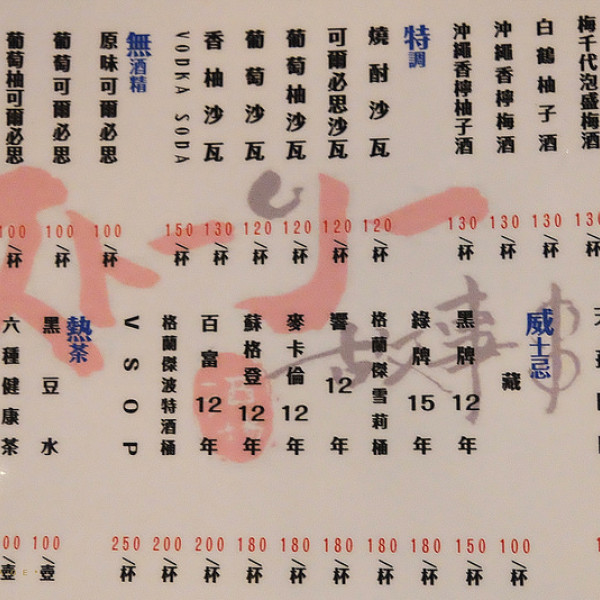 梅千代泡盛梅酒 130/杯
白鶴柚子酒 130/杯
沖繩香檸梅酒 130/杯
沖繩香檸柚子酒 130/杯
特調
燒酎沙瓦 120/杯
可爾必思沙瓦 120/杯
葡萄柚沙瓦 120/杯
葡萄沙瓦 120/杯
香柚沙瓦 130/杯
VODKA SODA 150/杯
無酒精
原味可爾必思 100/杯
葡萄可爾必思 100/杯
葡萄柚可爾必思 100/杯
威士忌
藏 100/杯
黑牌12年 150/杯
綠牌15年 180/杯
格蘭傑雪莉桶 180/杯
響12年 180/杯
麥卡倫12年 180/杯
蘇格登12年 180/杯
百富12年 200/杯
格蘭傑波特酒桶 200/杯
VSOP 250/杯
熱茶
黑豆水 100/壺
六種健康茶 00/壺
故事